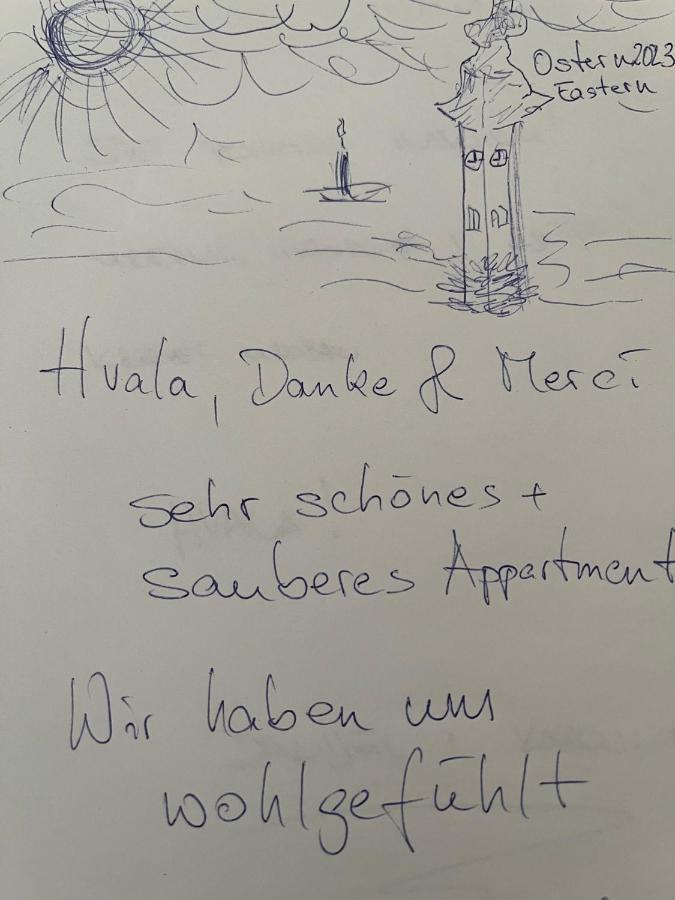 Ostern 2023
Eastern
Hvala, Danke & Merci
sehr schönes +
sauberes Appartment
Wir haben uns
wohlgefühlt